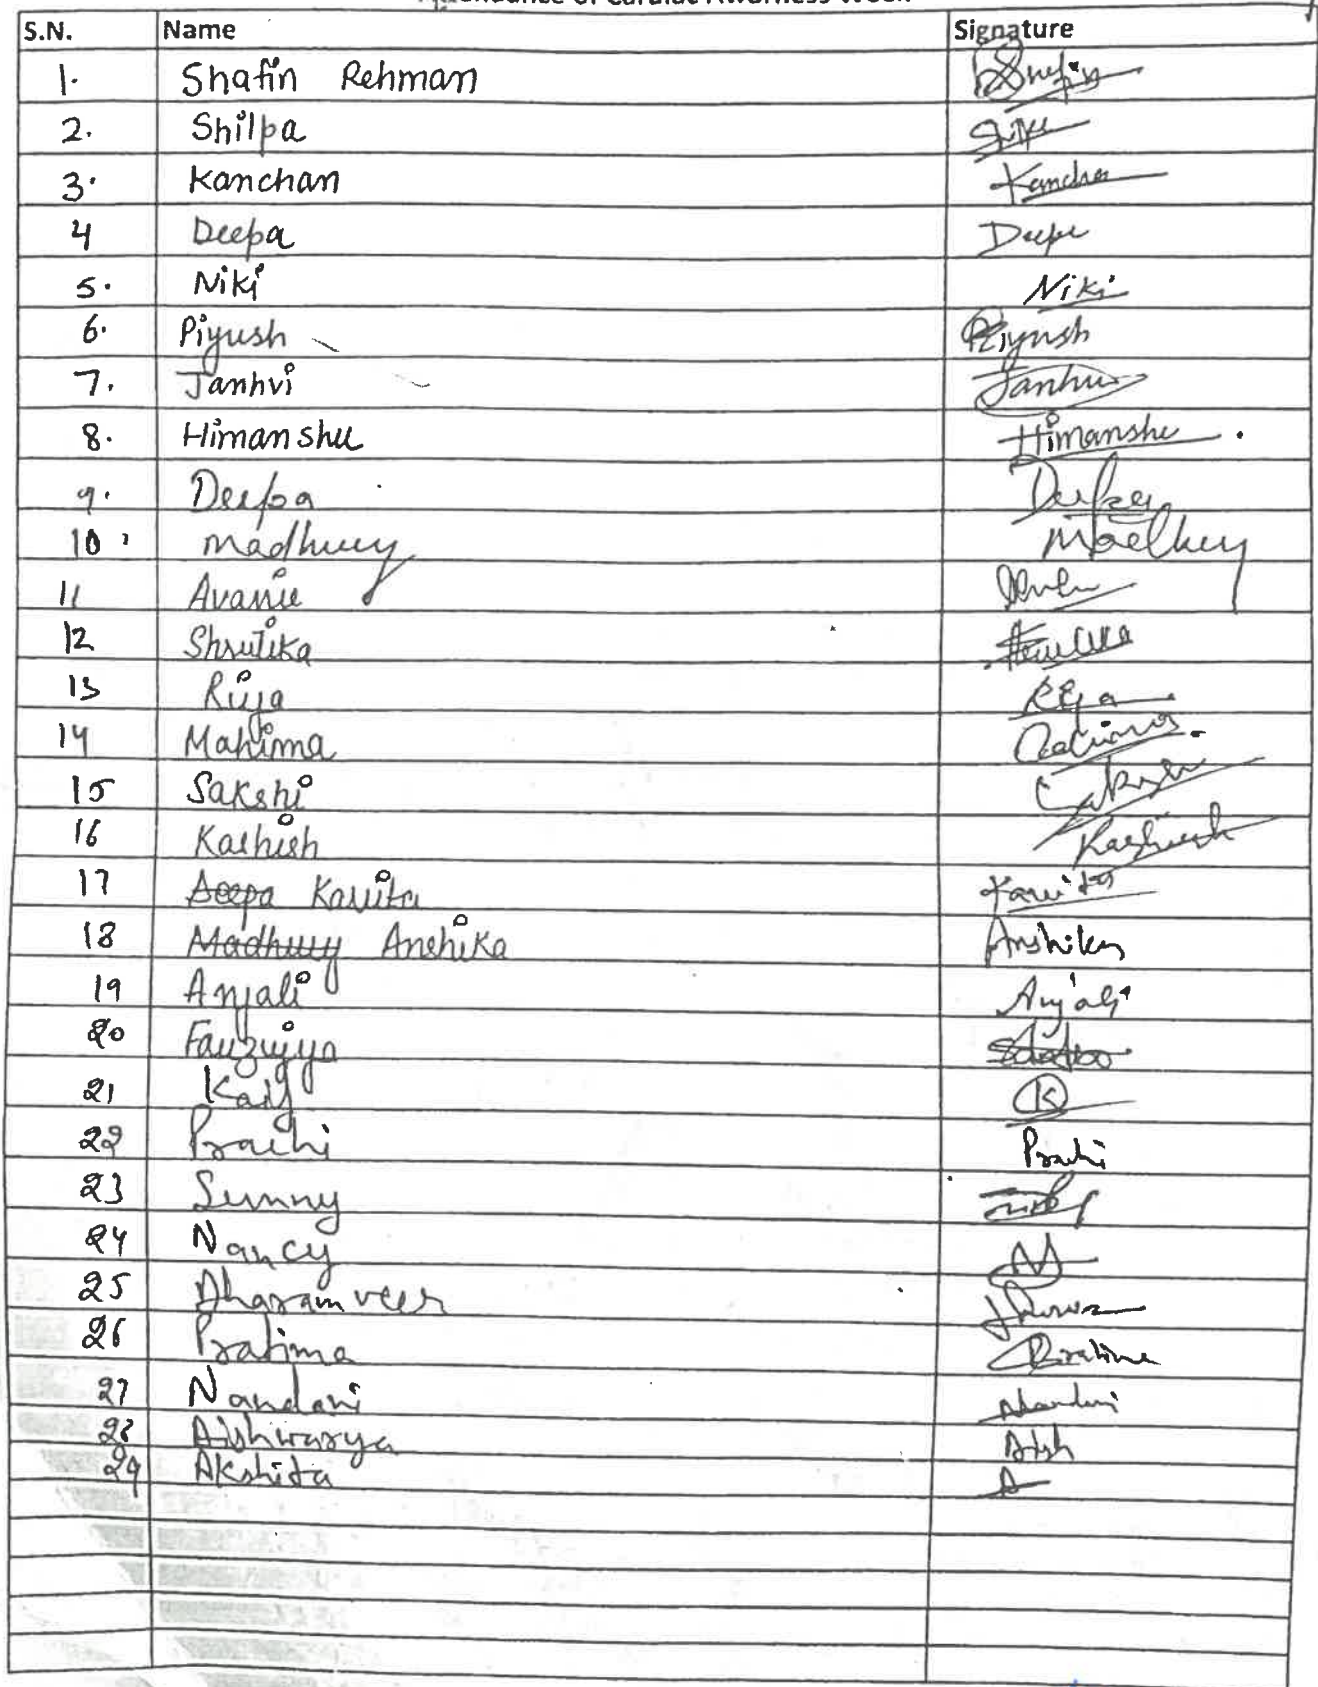 of Cardiac Awarness Week
S.N. Name Signature
1. Shafin Rehman Shafin
2. Shilpa Shilpa
3. Kanchan Kanchan
4 Deepa Deepa
5. Niki Niki
6. Piyush Piyush
7. Janhvi Janhvi
8. Himanshu Himanshu
9. Deepa Deepa
10 Madhury Madhury
11 Avanie
12 Shrutika
13 Riya Riya
14 Mahima
15 Sakshi Sakshi
16 Kashish Kashish
17 Deepa Kavita Kavita
18 Madhury Anshika Anshika
19 Anjali Anjali
20 Fauzujya
21 Kaif K
22 Prachi Prachi
23 Sunny
24 Nancy
25 Dharamveer
26 Pratima Pratima
27 Nandani Nandani
28 Aishwarya Aish
29 Akshita A